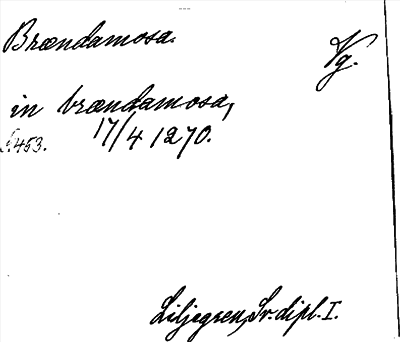 Brændamosa.
Vg.
in brændamosa,
17/4 1270.
S. 453.
Liljegren, Sv. dipl. I.